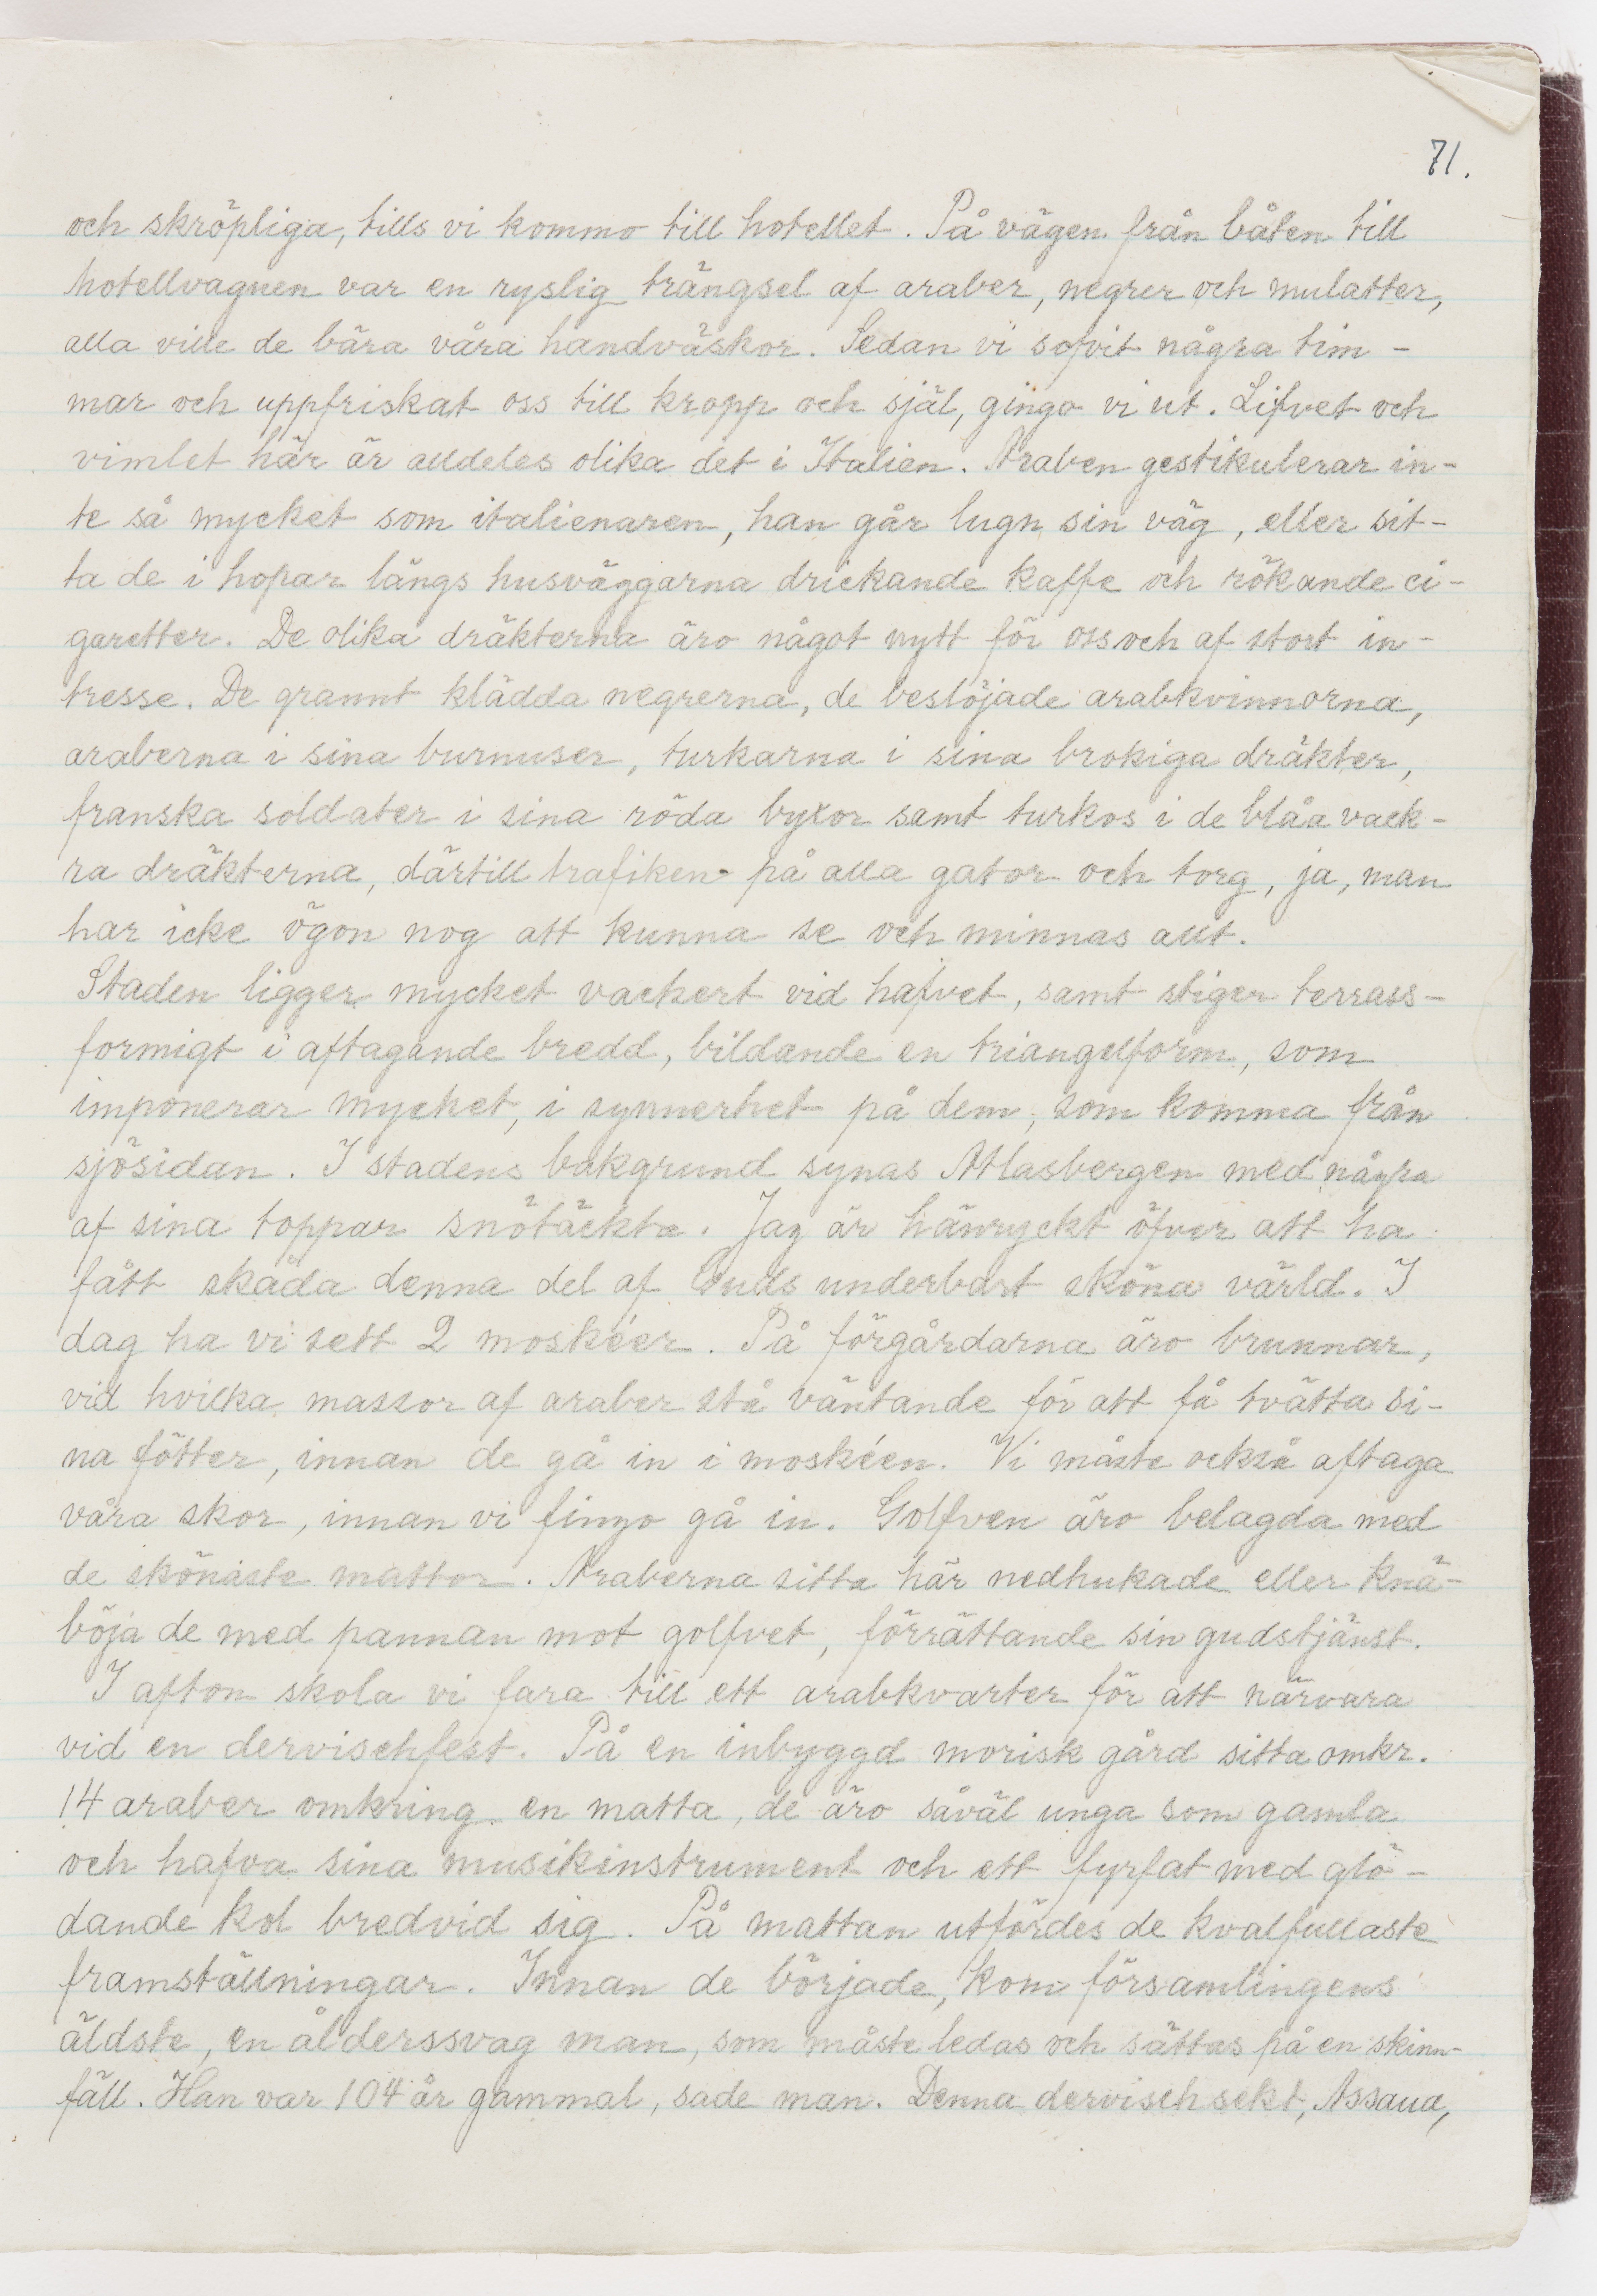 71.
och skröpliga, tills vi kommo till hotellet. På vägen från båten till
hotellvagnen var en ryslig trängsel af araber, negrer och mulatter,
alla ville de bära våra handväskor. Sedan vi sofvit några tim-
mar och uppfriskat oss till kropp och själ, gingo vi ut. Lifvet och
vimlet här är alldeles olika det i Italien. Araben gestikulerar in-
te så mycket som italienaren, han går lugn sin väg, eller sit-
ta de i hopar längs husväggarna drickande kaffe och rökande ci-
garetter. De olika dräkterna äro något nytt för oss och af stort in-
tresse. De grannt klädda negrerna, de beslöjade arabkvinnorna,
araberna i sina burnuser, turkarna i sina brokiga dräkter,
franska soldater i sina röda byxor samt turkos i de blåa vack-
ra dräkterna, därtill trafiken på alla gator och torg, ja, man
har icke ögon nog att kunna se och minnas allt.
Staden ligger mycket vackert vid hafvet, samt stiger terrass-
formigt i aftagande bredd, bildande en triangelform, som
imponerar mycket, i synnerhet på dem, som komma från
sjösidan. I stadens bakgrund synas Atlasbergen med några
af sina toppar snötäckta. Jag är hänryckt öfver att ha
fått skåda denna del af Guds underbart sköna värld. I
dag ha vi sett 2 moskéer. På förgårdarna äro brunnar,
vid hvilka massor af araber stå väntande för att få tvätta si-
na fötter, innan de gå in i moskéen. Vi måste också aftaga
våra skor, innan vi fingo gå in. Golfven äro belagda med
de skönaste mattor. Araberna sitta här nedhukade eller knä-
böja de med pannan mot golfvet, förrättande sin gudstjänst.
I afton skola vi fara till ett arabkvarter för att närvara
vid en dervischfest. På en inbyggd morisk gård sitta omkr.
14 araber omkring en matta, de äro såväl unga som gamla
och hafva sina musikinstrument och ett fyrfat med glö-
dande kol bredvid sig. På mattan utfördes de kvalfullaste
framställningar. Innan de började, kom församlingens
äldste, en ålderssvag man, som måste ledas och sättas på en skinn-
fäll. Han var 104 år gammal, sade man. Denna dervischsekt, Assaua,